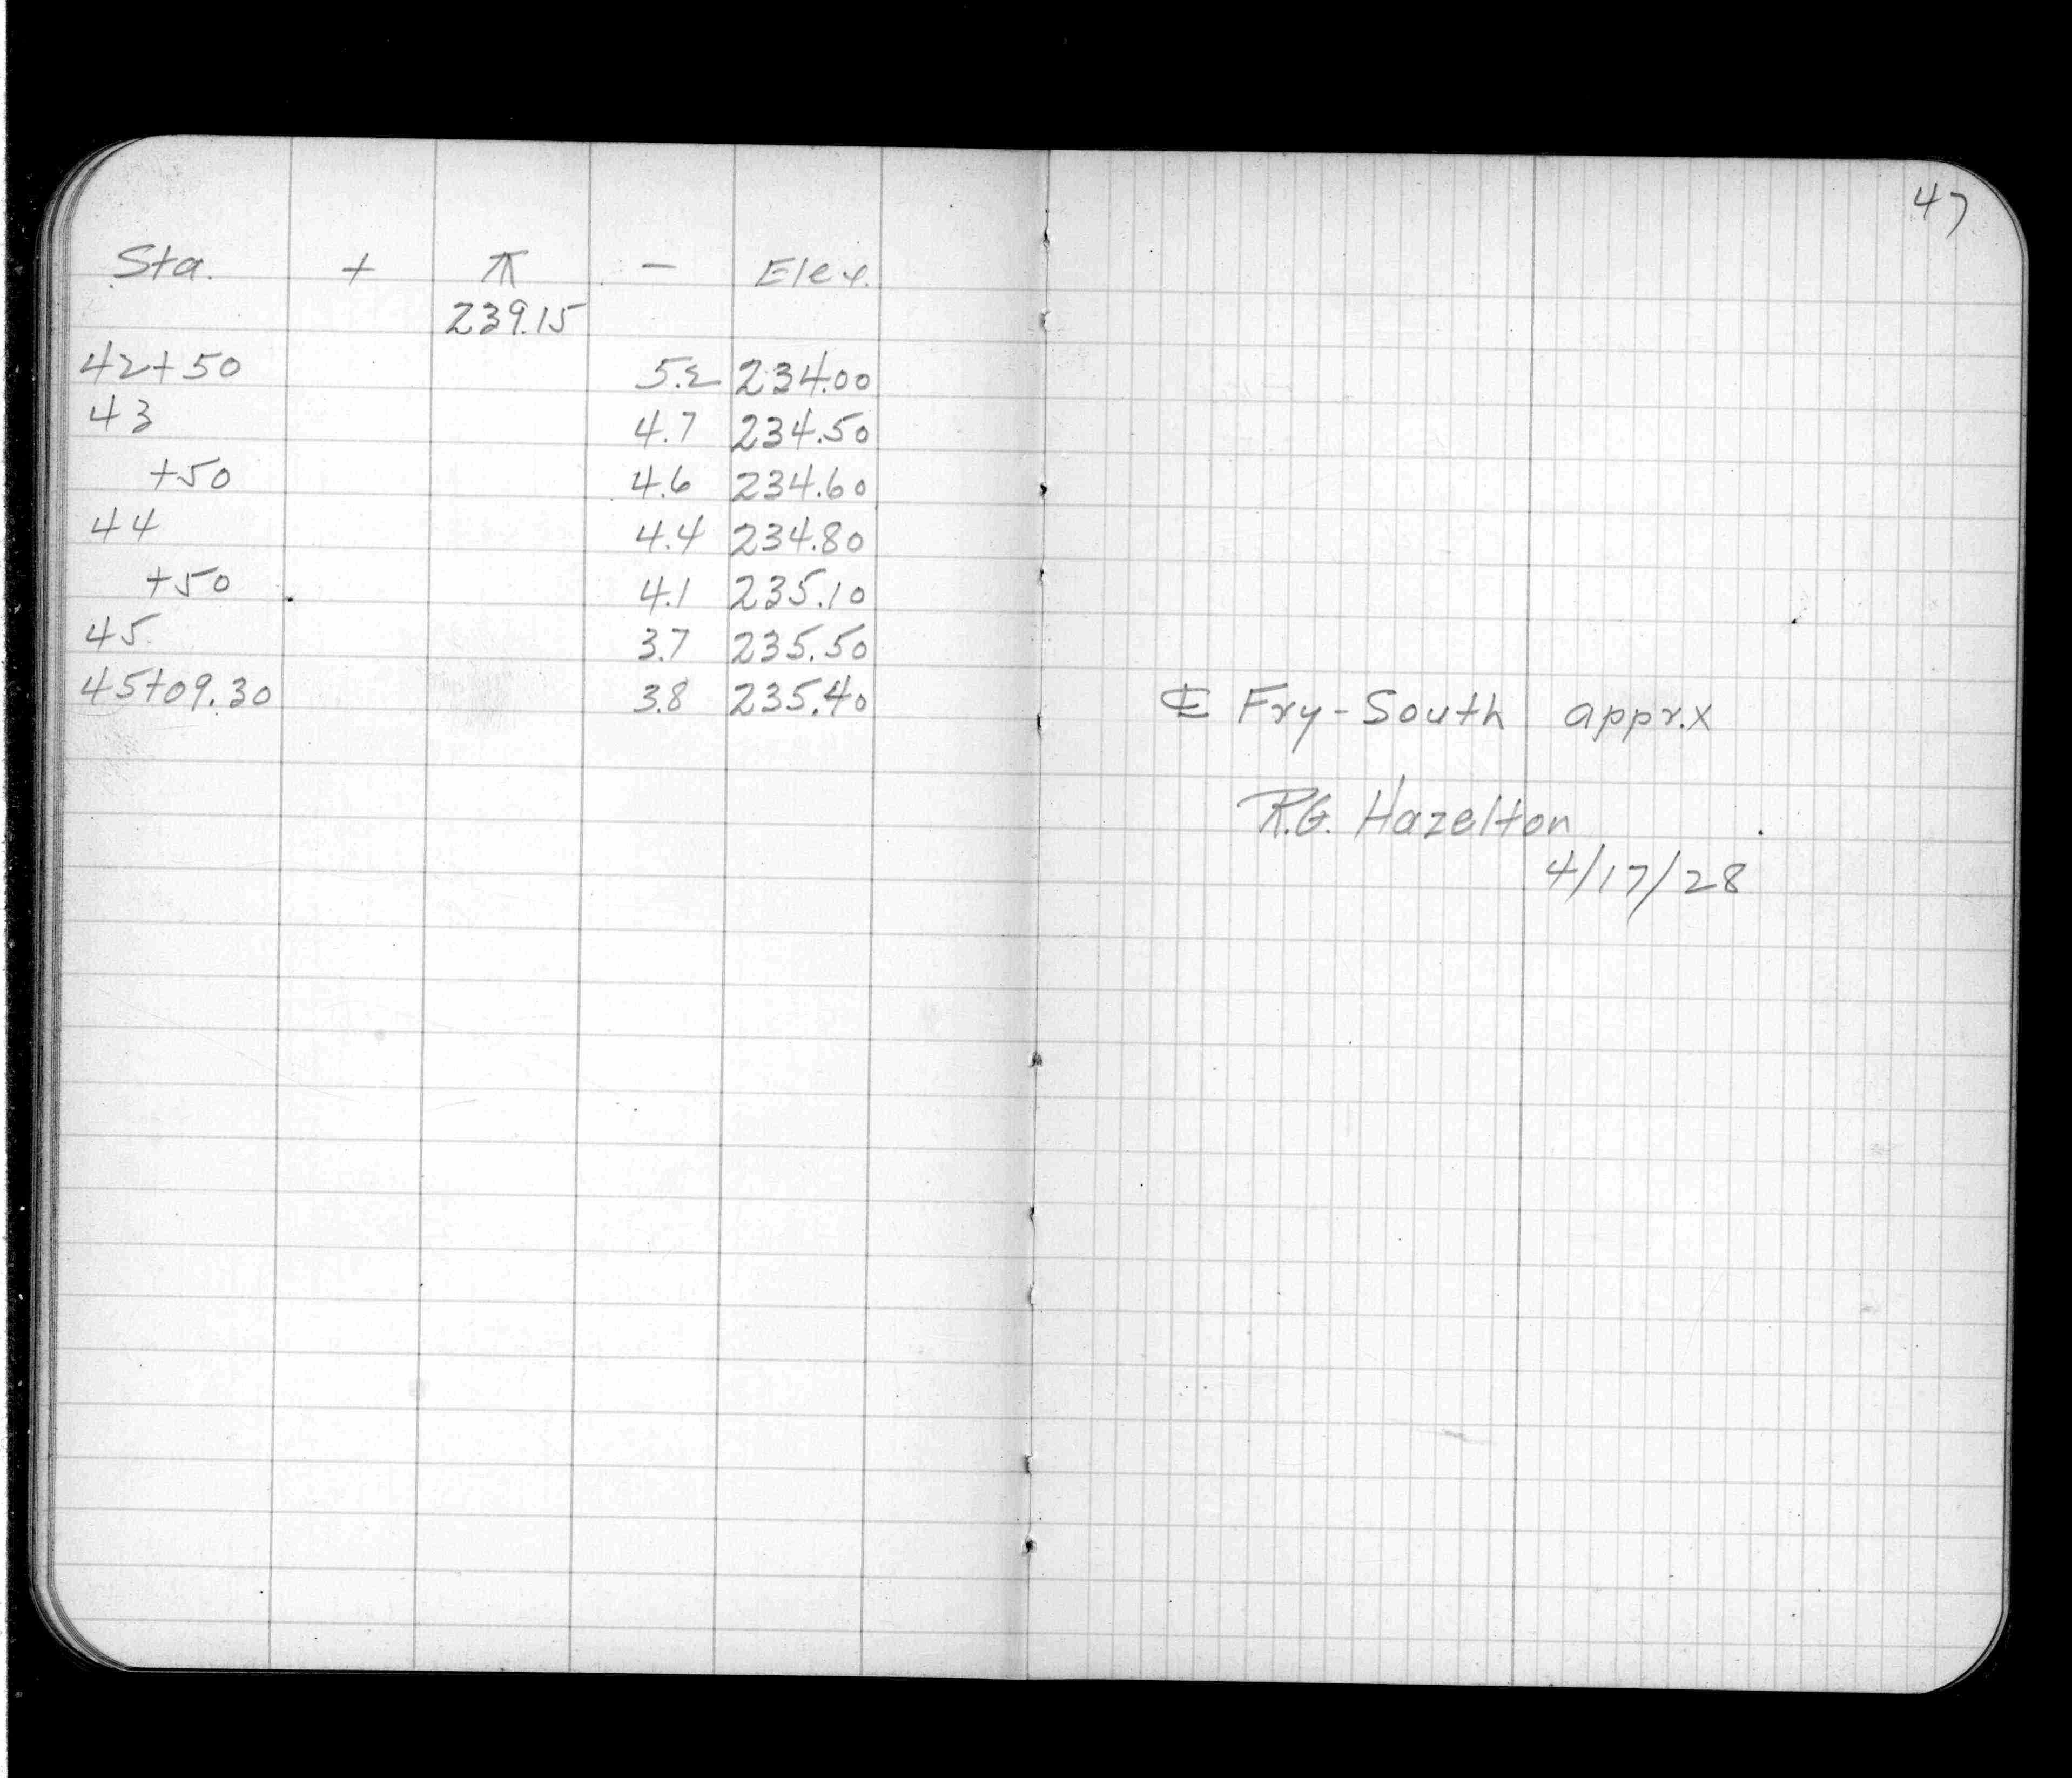 47
Sta. + π - Elev.
239.15
42+50 5.2 234.00
43 4.7 234.50
+50 4.6 234.60
44 4.4 234.80
+50 4.1 235.10
45 3.7 235.50
45+09.30 3.8 235.40 ℄ Fry-South appr.x
R.G. Hazelton
4/17/28